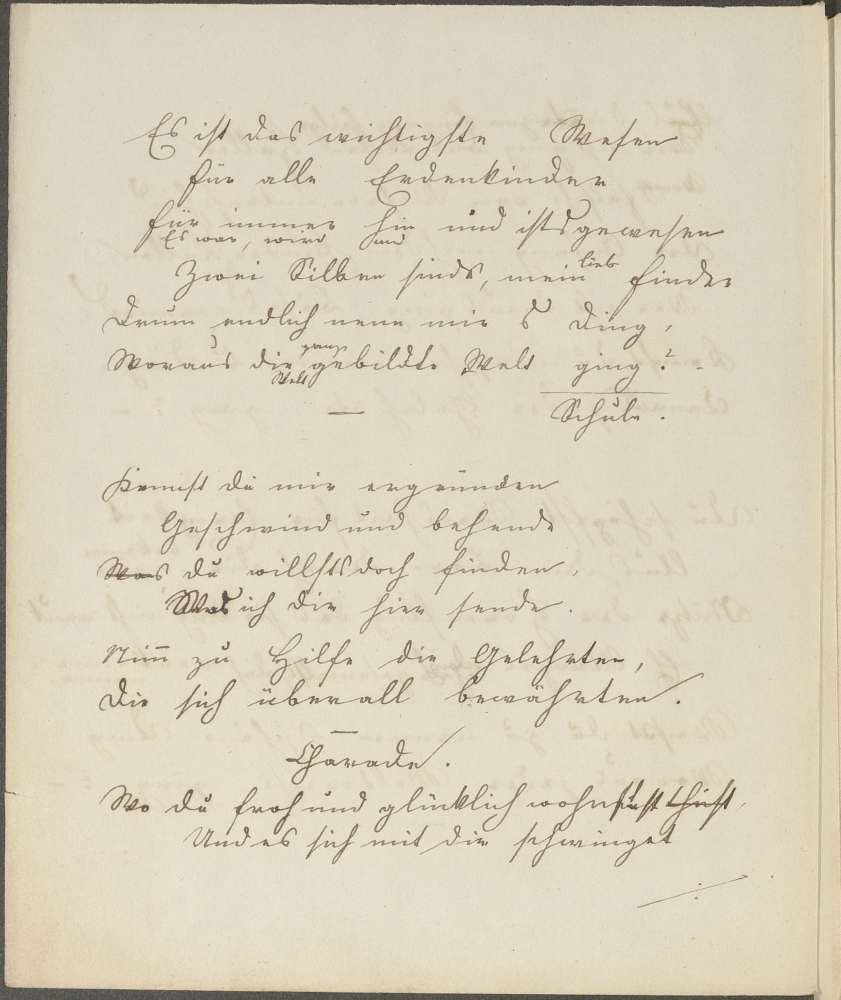 Es ist das wichtigste Wesen
für alle Erdenkinder
für immer hin und ists gewesen
Es war, wird und
Zwei Silben sinds, mein lieb finder
Drum endlich nenn mir s Ding,
Woraus die ganze gebildte Welt ging?
Welt
Schule.
Kannst du mir ergründen
Geschwind und behende
Was du willsts doch finden,
Was ich dir hier sende.
Nim̄ zu Hilfe die Gelehrten,
Die sich überall bewährten.
Charade.
Wo du froh und glücklich wohnst
Und es sich mit dir schwinget